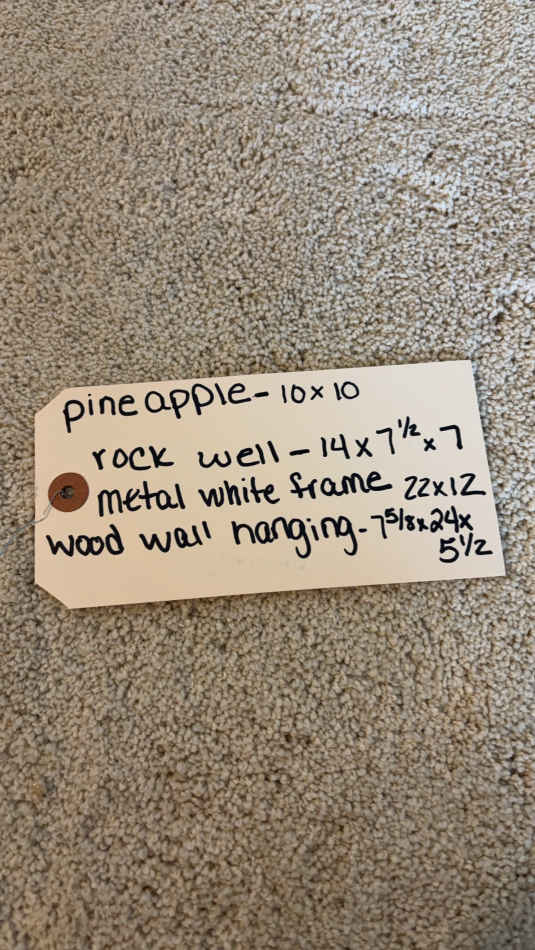 pineapple - 10 x 10
rock well - 14 x 7 1/2 x 7
metal white frame 22x12
wood wall hanging - 7 5/8 x 24 x
5 1/2